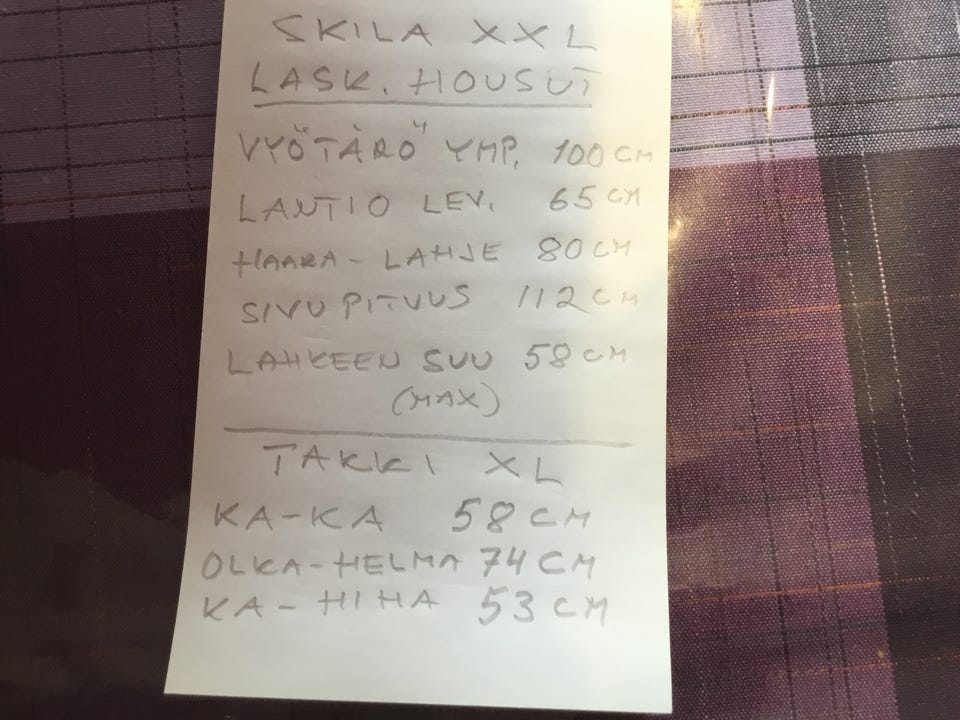 SKILA XXL
LASK. HOUSUT
VYÖTÄRÖ YMP. 100 CM
LANTIO LEV. 65 CM
HAARA - LAHJE 80 CM
SIVU PITUUS 112 CM
LAHKEEN SUU 58 CM
(MAX)
TAKKI XL
KA-KA 58 CM
OLKA-HELMA 74 CM
KA-HIHA 53 CM